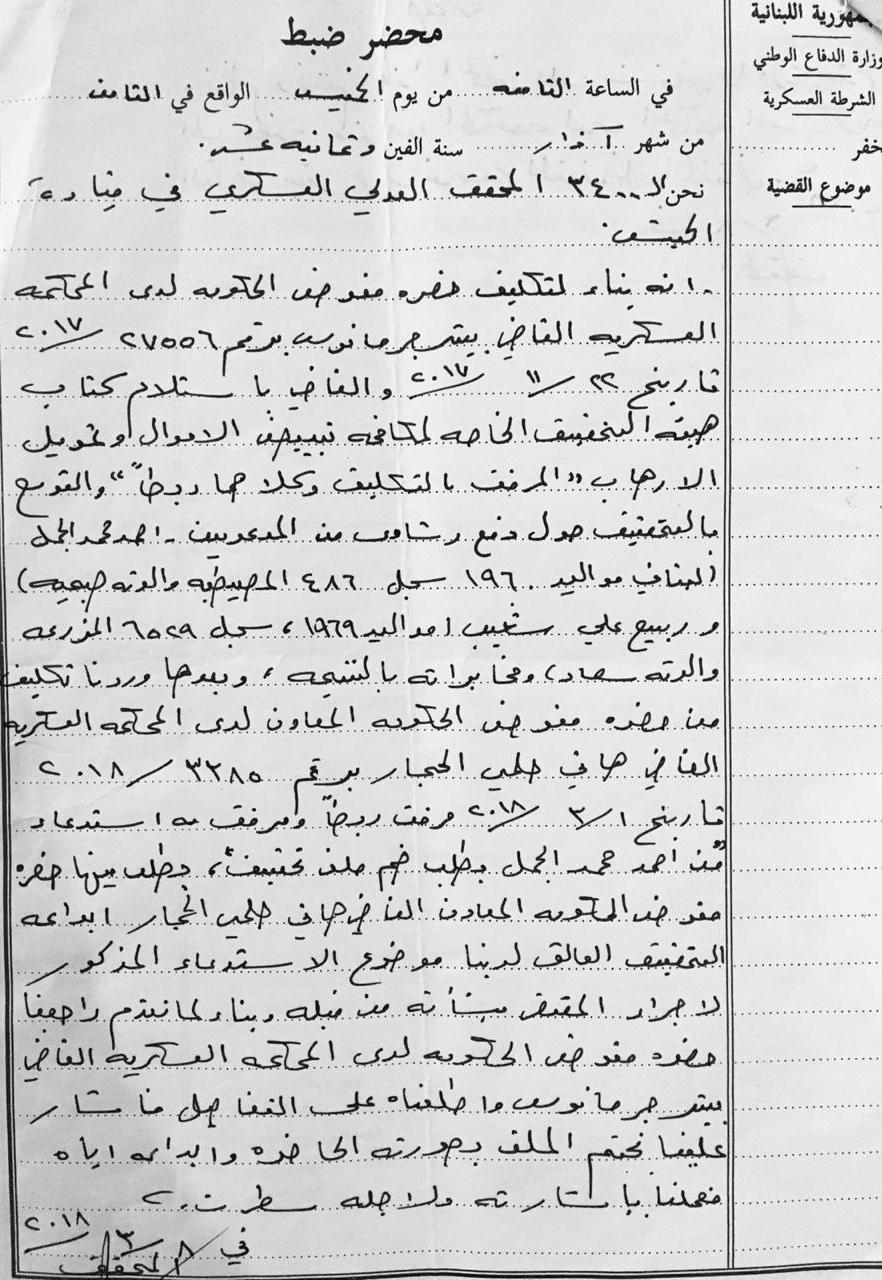 الجمهورية اللبنانية
وزارة الدفاع الوطني
الشرطة العسكرية
مخفر
موضوع القضية
محضر ضبط
في الساعة الثامنه من يوم الخميس الواقع في الثامن
من شهر آذار سنة الفين وثمانيه عشر.
نحن ال ٣٤٠٠ المحقق العدلي العسكري في قيادة
الجيش.
انه بناء لتكليف حضره مفوض الحكومه لدى المحكمه
العسكريه القاضي بيتر جرمانوس برقم ٢٧٥٥٦/٢٠١٧
تاريخ ٢٢/١١/٢٠١٧ والقاضي باستلام كتاب
هيئة التحقيق الخاصه لمكافحة تبييض الاموال وتمويل
الارهاب "المرفق بالتكليف وكلاهما ربطاً" والتوسع
بالتحقيق حول دفع رشاوى من المدعويين احمد محمد الجمل
(لبناني مواليد ١٩٦٠ سجل ٤٨٦ المصيطبه والدته صبحيه)
و ربيع علي شعيب (مواليد ١٩٦٩، سجل ٦٥٢٩ المزرعه
والدته سعاد)، ومخابراته بالنتيجه، وبعدها وردنا تكليف
من حضره مفوض الحكومه المعاون لدى المحكمه العسكريه
القاضي هاني حلمي الحجار برقم ٣٢٨٥/٢٠١٨
تاريخ ١/٣/٢٠١٨ مرفق ربطاً ومرفق به استدعاء
"من أحمد محمد الجمل بطلب ضم ملف تحقيق"، يطلب فيها حضره
مفوض الحكومه المعاون القاضي هاني حلمي الحجار ايداعه
التحقيق العالق لدينا موضوع الاستدعاء المذكور
لاجراء المقتضى بشأنه من قبله وبناء لما تقدم راجعنا
حضره مفوض الحكومه لدى المحكمه العسكريه القاضي
بيتر جرمانوس واطلعناه على التفاصيل فاشار
علينا بختم الملف بصورته الحاضره وايداعه اياه
فعملنا باشارته ولاجله سطرت.
في ٨/٣/٢٠١٨
المحقق